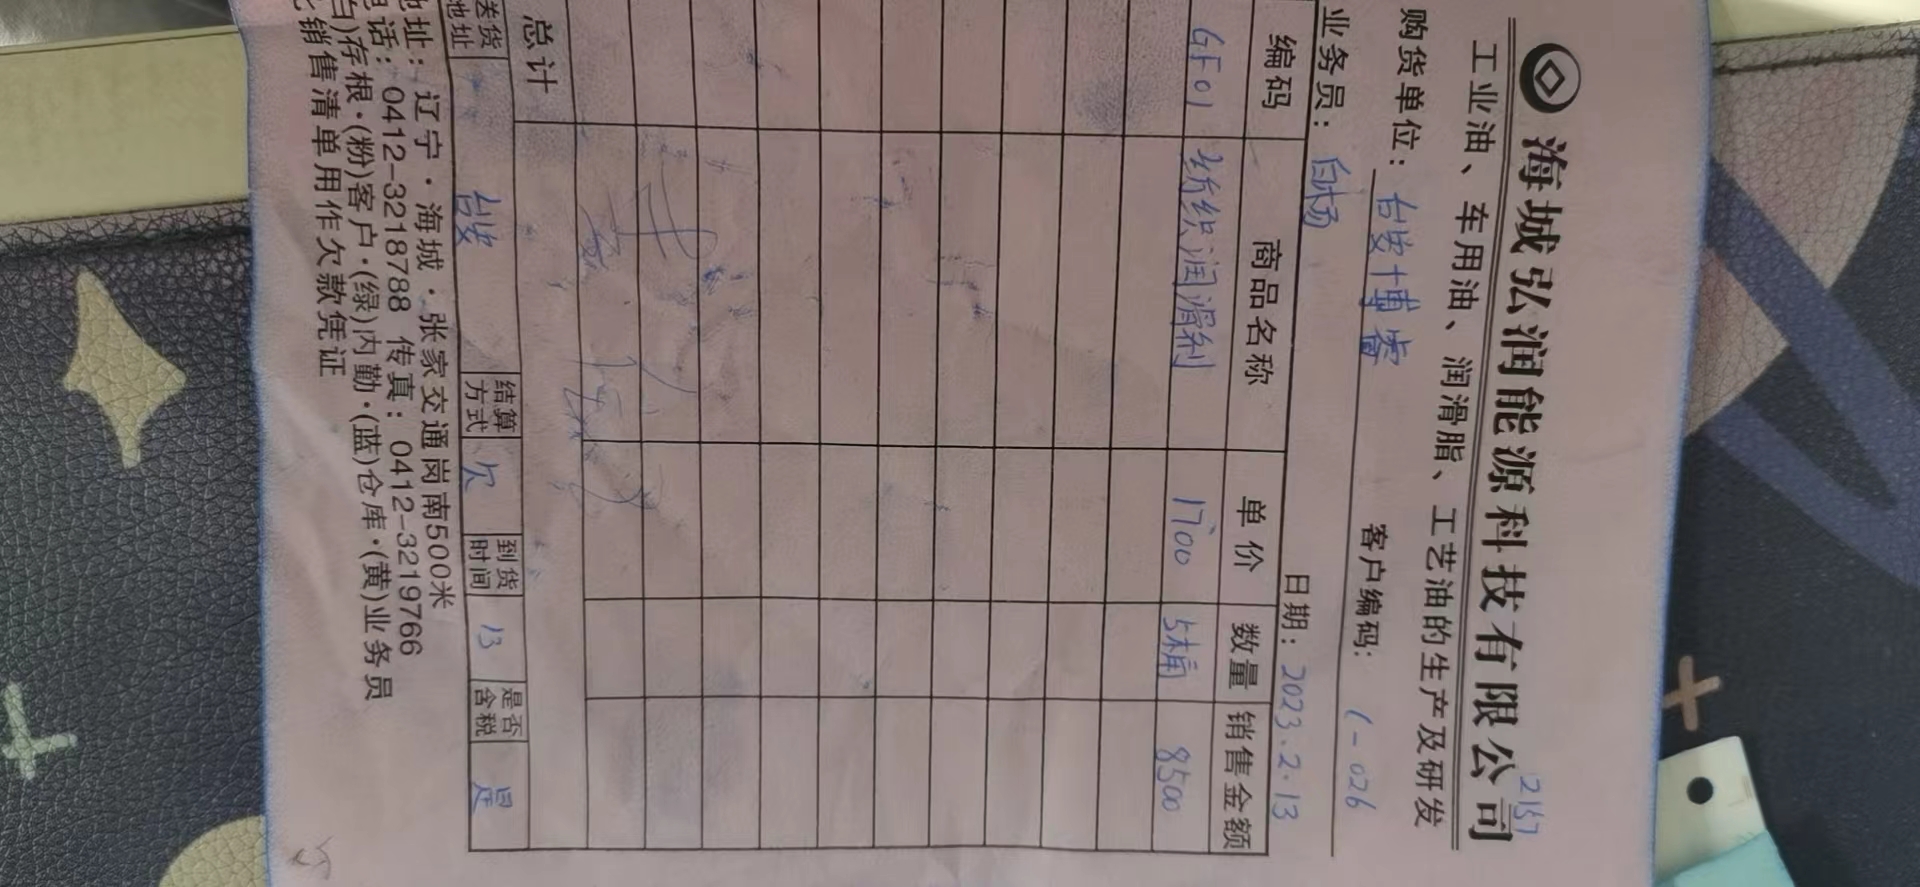 2157
海城弘润能源科技有限公司
工业油、车用油、润滑脂、工艺油的生产及研发
购货单位：台安博睿 客户编码：1-026
业务员：白杨 日期：2023.2.13
编码 商品名称 单价 数量 销售金额
GF01 纺织润滑剂 1700 5桶 8500
总计
送货地址 台安 结算方式 欠 到货时间 13 是否含税 是
地址：辽宁·海城·张家交通岗南500米
话：0412-3218788 传真：0412-3219766
白)存根·(粉)客户·(绿)内勤·(蓝)仓库·(黄)业务员
销售清单用作欠款凭证